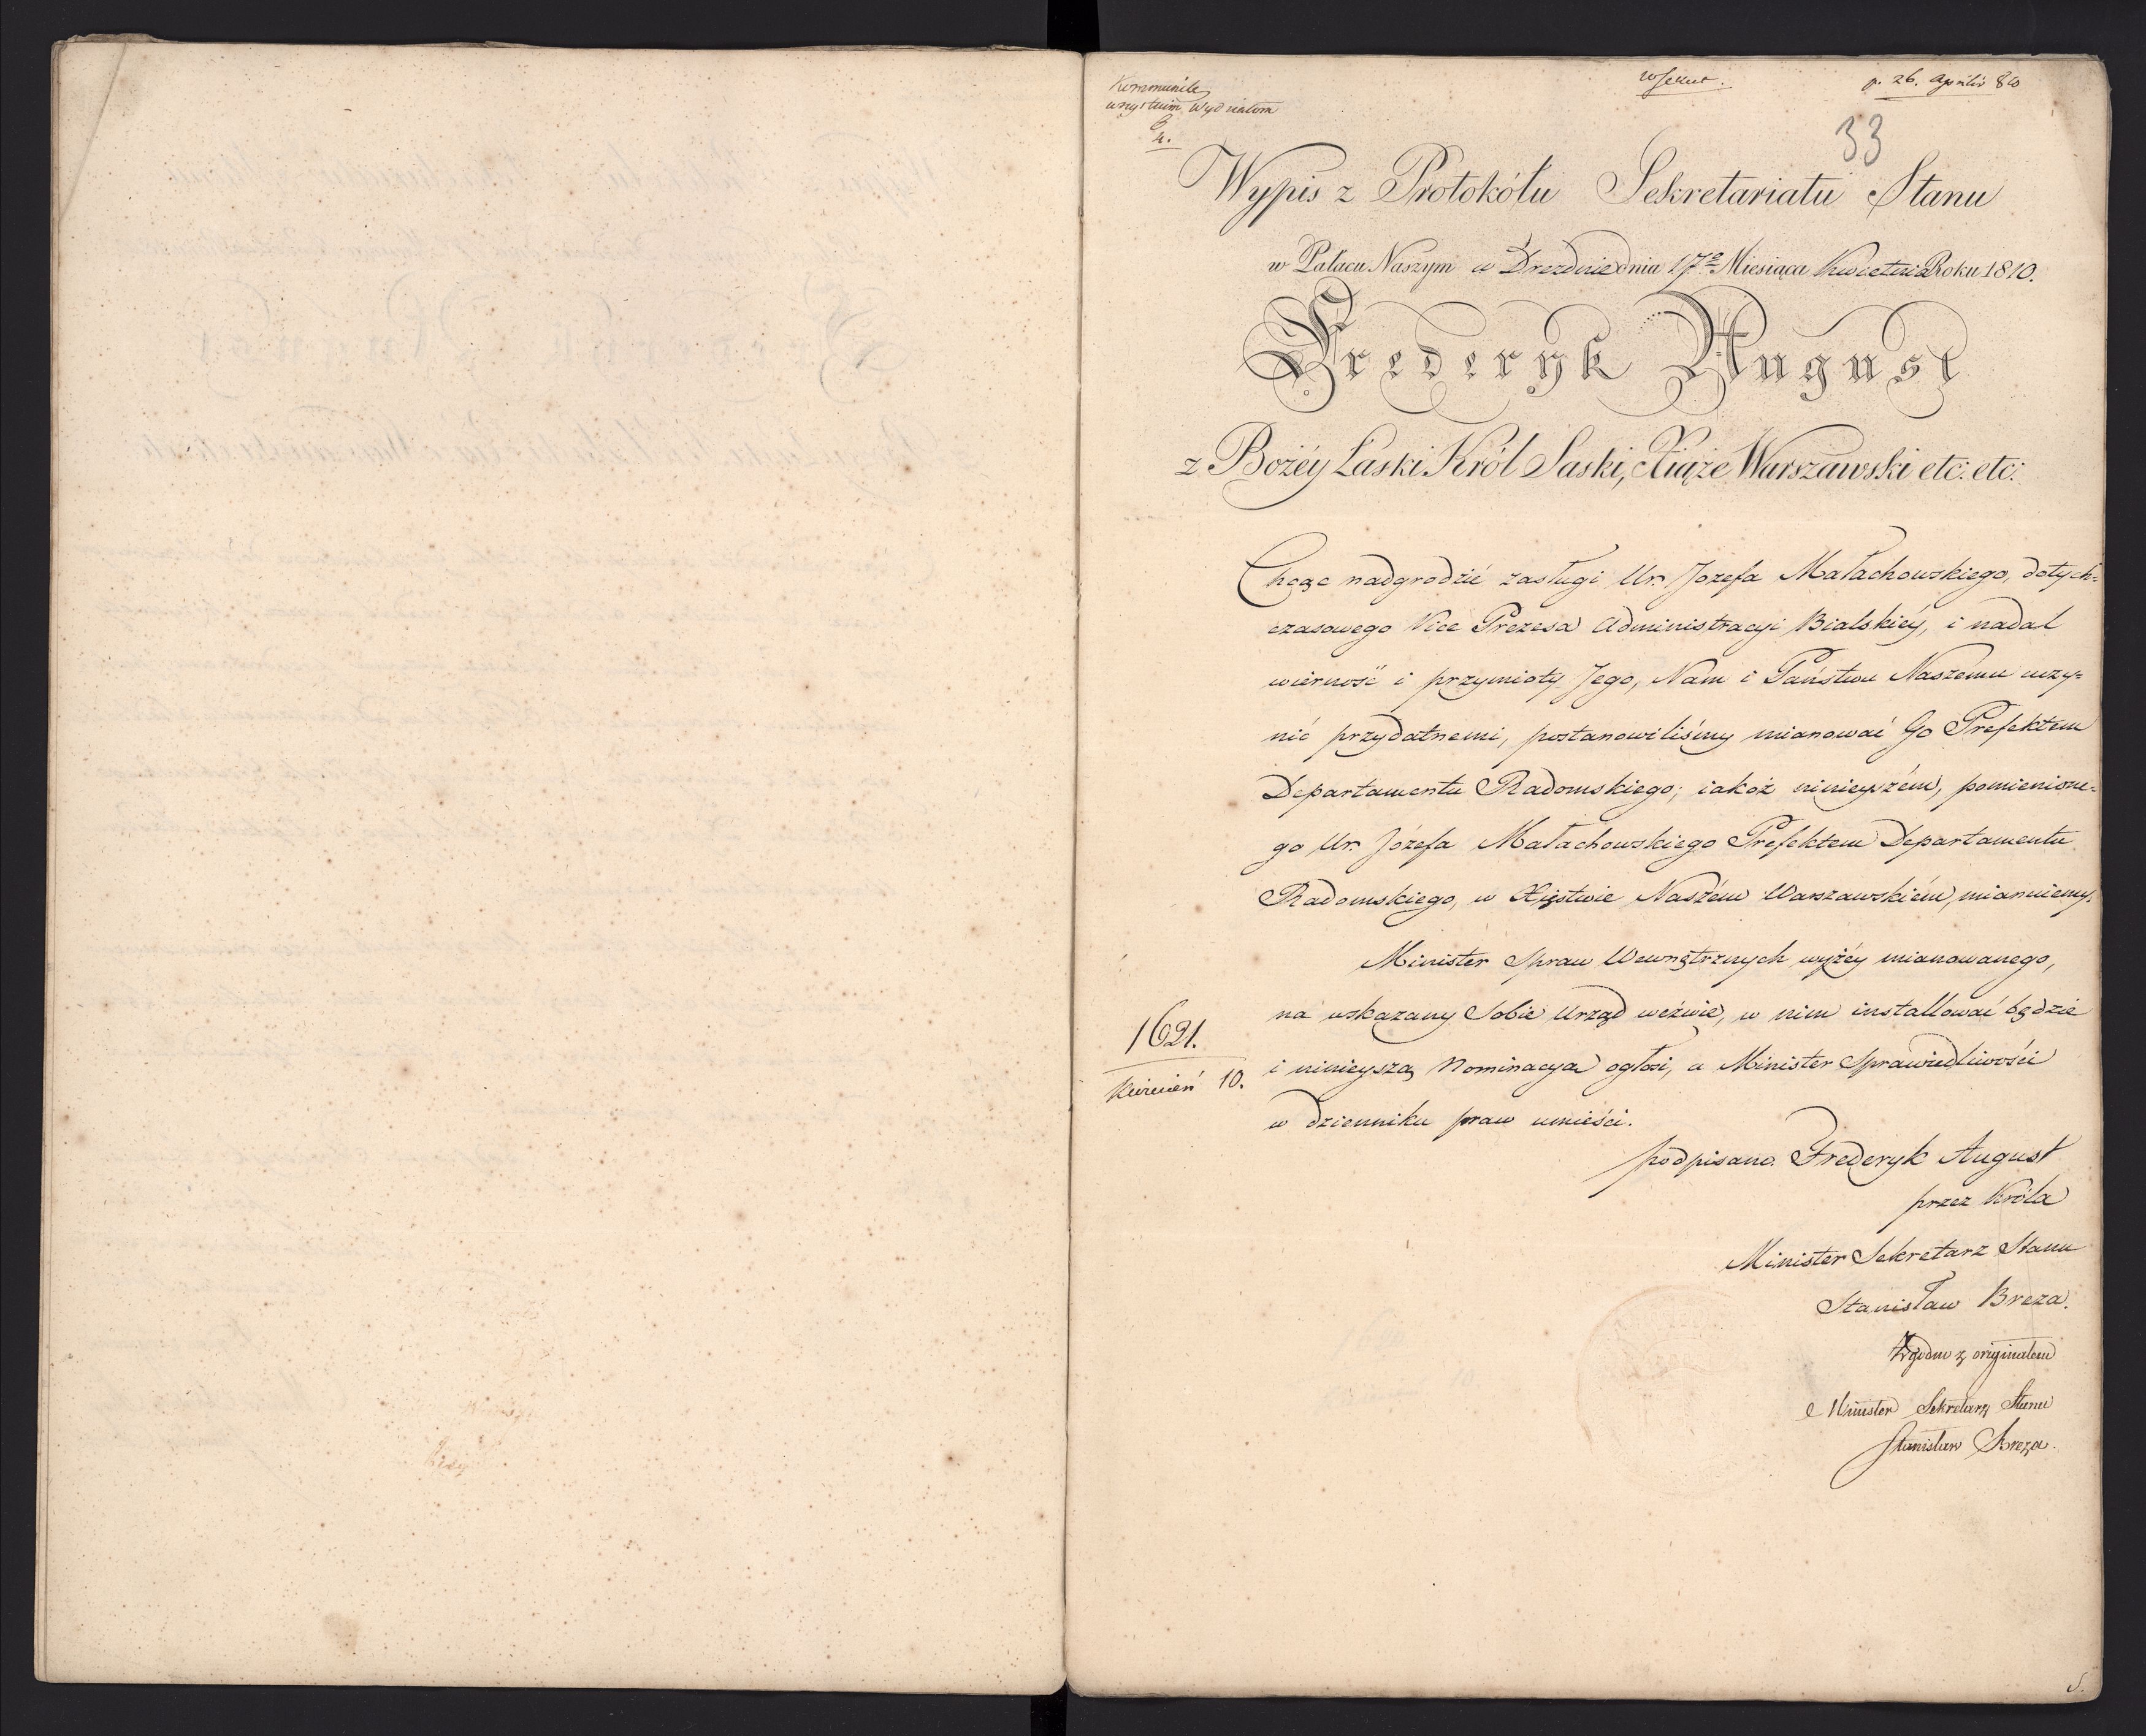 Kommunik
wszystkim Wydziałom
w Sekret.
p. 26. Aprilis 810
33
Wypis z Protokółu Sekretariatu Stanu
w Pałacu Naszym w Dreznie dnia 17º Miesiąca Kwietnia Roku 1810.
Frederyk August
z Bożéy Łaski Król Saski, Xiąże Warszawski etc: etc:
Chcąc nadgrodzić zasługi Ur. Jozefa Małachowskiego, dotych=
czasowego Vice Prezesa Administracyi Bialskiéy, i nadal
wierność i przymioty Jego, Nam i Państwu Naszému uczy=
nić przydatnemi, postanowiliśmy mianować Go Prefektem
Departamentu Radomskiego; iakoż ninieyszém, pomienione=
go Ur. Józefa Małachowskiego Prefektem Departamentu
Radomskiego, w Xięstwie Naszém Warszawskiém, mianuiemy.
Minister Spraw Wewnętrznych wyżéy mianowanego,
na wskazany Sobie Urząd wezwie, w nim installować będzie
i ninieyszą Nominacyą ogłosi, a Minister Sprawiedliwości
w dzienniku praw umieści.
1621.
Kwiecień 10.
podpisano. Frederyk August
przez Króla
Minister Sekretarz Stanu
Stanisław Breza.
Zgodno z oryginałem
Minister Sekretarz Stanu
Stanisław Breza.